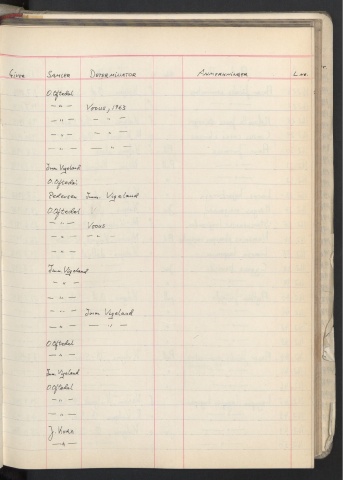 GIVER SAMLER DETERMINATOR ANMERKNINGER L.nr.
O Oftedal
— " — VOOUS, 1963
— " — — " —
— " — — " —
— " — — " —
Imm. Vigeland
O. Oftedal
Pedersen Imm. Vigeland
O Oftedal
— " — VOOUS
— " — — " —
— " —
Imm Vigeland
— " —
— " —
— " — Imm Vigeland
— " — — " —
O Oftedal
— " —
Imm. Vigeland
O. Oftedal
— " —
— " —
J.
— " —